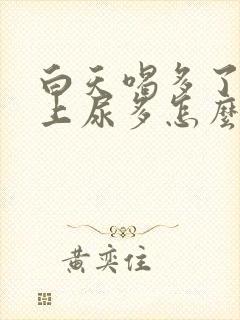 白天喝多了
上尿多怎麼
黄奕住